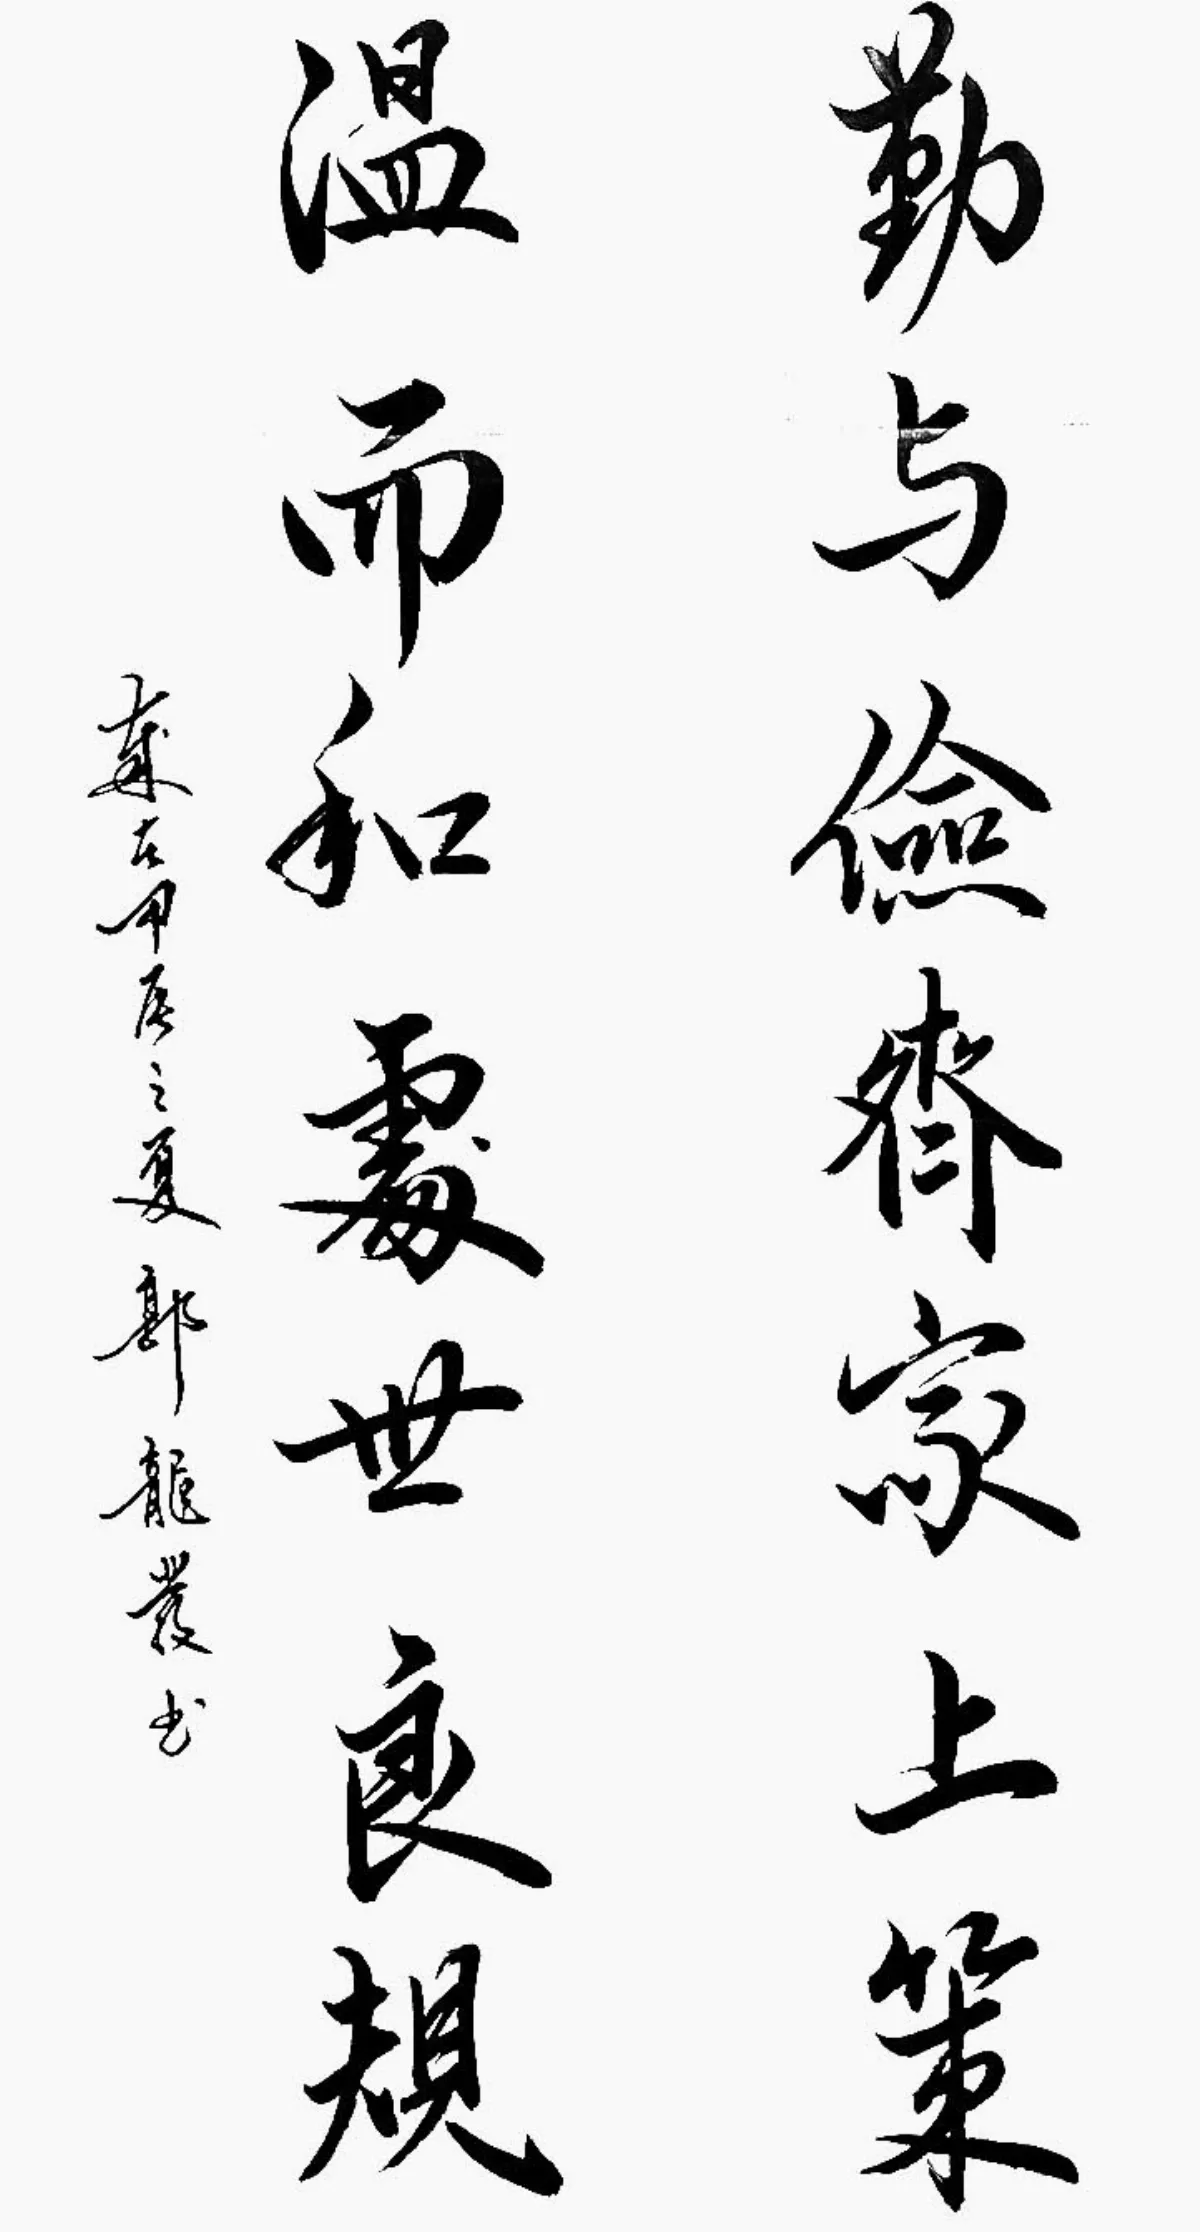 勤与儉齊家上策
温而和處世良規
歲在甲辰之夏郭龍發书